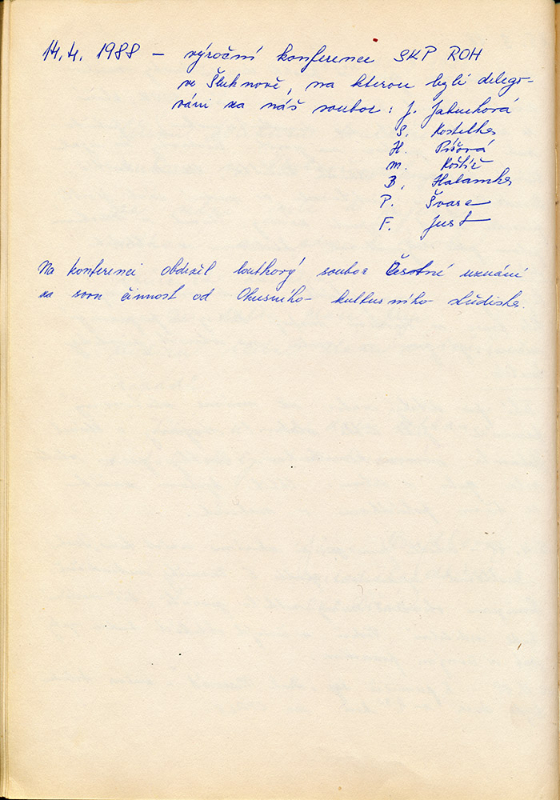 14. 4. 1988 – výroční konference SKP ROH
ve Šluknově, na kterou byli delego-
váni za náš soubor : J. Jakuchová
S. Kostelka
H. Píšová
M. Koštíř
B. Halamka
P. Švarc
F. Just
Na konferenci obdržel loutkový soubor Čestné uznání
za svou činnost od Okresního kulturního střediska.